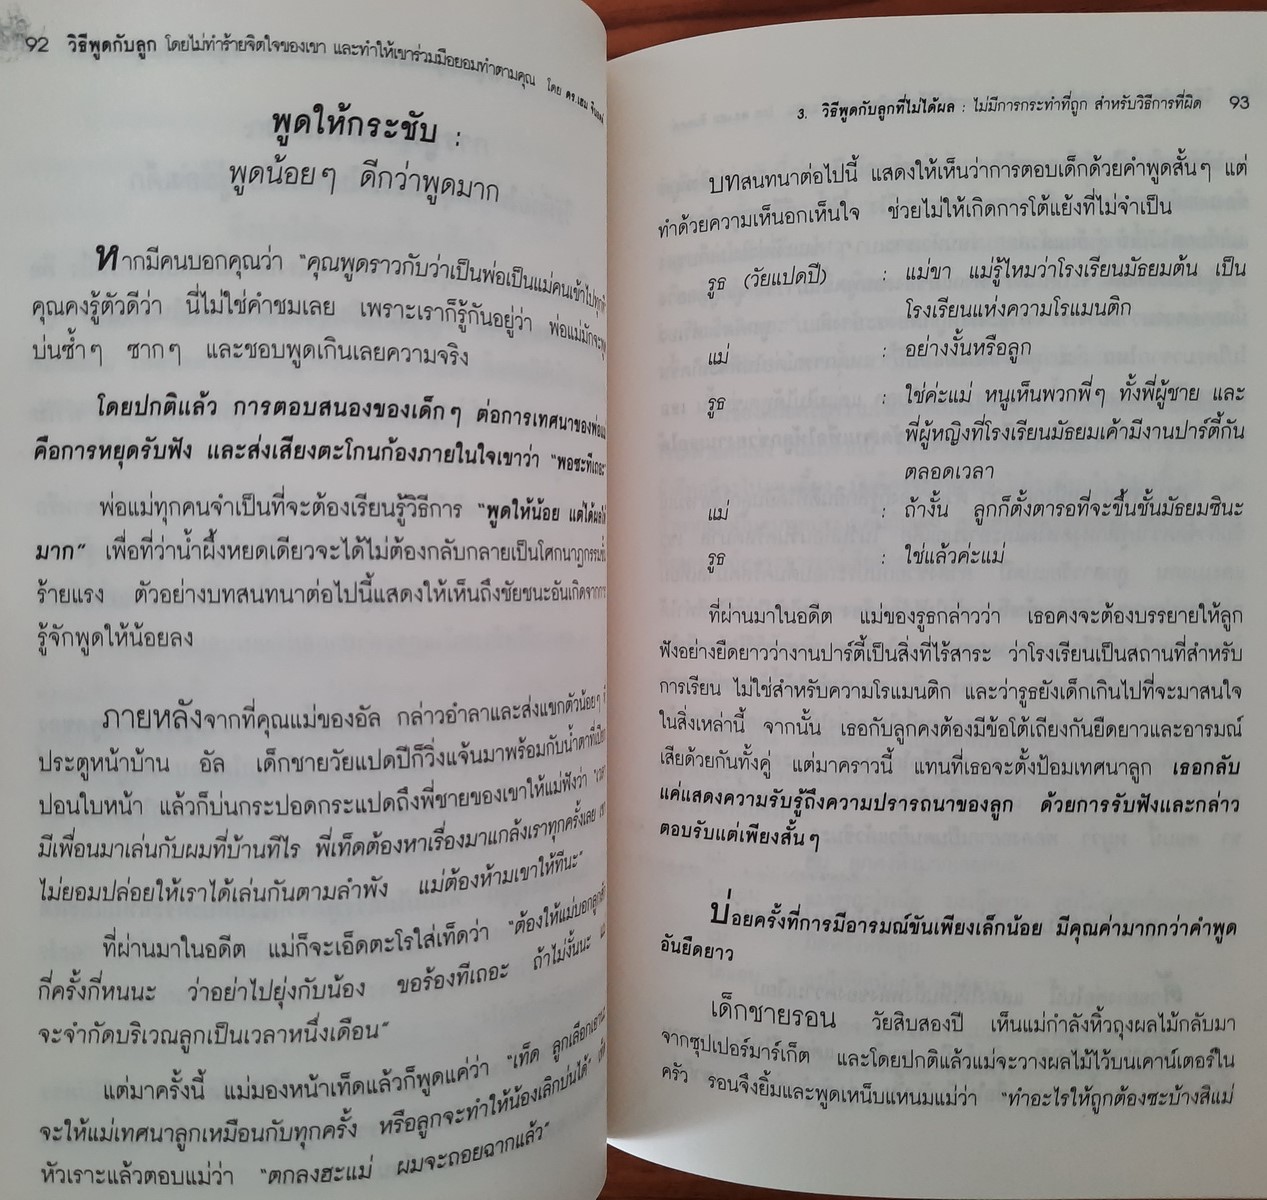 92 วิธีพูดกับลูก โดยไม่ทำร้ายจิตใจของเขา และทำให้เขาร่วมมือยอมทำตามคุณ โดย ดร.เฮม
พูดให้กระชับ :
พูดน้อยๆ ดีกว่าพูดมาก
หากมีคนบอกคุณว่า "คุณพูดราวกับว่าเป็นพ่อเป็นแม่คนเข้าไปทุกที
คุณคงรู้ตัวดีว่า นี่ไม่ใช่คำชมเลย เพราะเราก็รู้กันอยู่ว่า พ่อแม่มักจะ
บ่นซ้ำๆ ซากๆ และชอบพูดเกินเลยความจริง
โดยปกติแล้ว การตอบสนองของเด็กๆ ต่อการเทศนาของพ่อแม่
คือการหยุดรับฟัง และส่งเสียงตะโกนก้องภายในใจเขาว่า "พอซะทีเถอะ
พ่อแม่ทุกคนจำเป็นที่จะต้องเรียนรู้วิธีการ "พูดให้น้อย แต่ได้ผลให้
มาก" เพื่อที่ว่าน้ำผึ้งหยดเดียวจะได้ไม่ต้องกลับกลายเป็นโศกนาฏกรรม
ร้ายแรง ตัวอย่างบทสนทนาต่อไปนี้แสดงให้เห็นถึงชัยชนะอันเกิดจากการ
รู้จักพูดให้น้อยลง
ภายหลังจากที่คุณแม่ของอัล กล่าวอำลาและส่งแขกตัวน้อยๆ ที่
ประตูหน้าบ้าน อัล เด็กชายวัยแปดปีก็วิ่งแจ้นมาพร้อมกับน้ำตาที่เปียก
ปอนใบหน้า แล้วก็บ่นกระปอดกระแปดถึงพี่ชายของเขาให้แม่ฟังว่า "เวลา
มีเพื่อนมาเล่นกับผมที่บ้านทีไร พี่เท็ดต้องหาเรื่องมาแกล้งเราทุกครั้งเลย เขา
ไม่ยอมปล่อยให้เราได้เล่นกันตามลำพัง แม่ต้องห้ามเขาให้ทีนะ"
ที่ผ่านมาในอดีต แม่ก็จะเอ็ดตะโรใส่เท็ดว่า "ต้องให้แม่บอกลูกสัก
กี่ครั้งกี่หนนะ ว่าอย่าไปยุ่งกับน้อง ขอร้องทีเถอะ ถ้าไม่งั้นนะ แม่
จะจำกัดบริเวณลูกเป็นเวลาหนึ่งเดือน"
แต่มาครั้งนี้ แม่มองหน้าเท็ดแล้วก็พูดแค่ว่า "เท็ด ลูกเลือกเอานะ
จะให้แม่เทศนาลูกเหมือนกับทุกครั้ง หรือลูกจะทำให้น้องเลิกบ่นได้" เท็ด
หัวเราะแล้วตอบแม่ว่า "ตกลงฮะแม่ ผมจะถอยฉากแล้ว"
3. วิธีพูดกับลูกที่ไม่ได้ผล : ไม่มีการกระทำที่ถูก สำหรับวิธีการที่ผิด 93
บทสนทนาต่อไปนี้ แสดงให้เห็นว่าการตอบเด็กด้วยคำพูดสั้นๆ แต่
ทำด้วยความเห็นอกเห็นใจ ช่วยไม่ให้เกิดการโต้แย้งที่ไม่จำเป็น
รูธ (วัยแปดปี) : แม่ขา แม่รู้ไหมว่าโรงเรียนมัธยมต้น เป็น
โรงเรียนแห่งความโรแมนติก
แม่ : อย่างงั้นหรือลูก
รูธ : ใช่ค่ะแม่ หนูเห็นพวกพี่ๆ ทั้งพี่ผู้ชาย และ
พี่ผู้หญิงที่โรงเรียนมัธยมเค้ามีงานปาร์ตี้กัน
ตลอดเวลา
แม่ : ถ้างั้น ลูกก็ตั้งตารอที่จะขึ้นชั้นมัธยมซินะ
รูธ : ใช่แล้วค่ะแม่
ที่ผ่านมาในอดีต แม่ของรูธกล่าวว่า เธอคงจะต้องบรรยายให้ลูก
ฟังอย่างยืดยาวว่างานปาร์ตี้เป็นสิ่งที่ไร้สาระ ว่าโรงเรียนเป็นสถานที่สำหรับ
การเรียน ไม่ใช่สำหรับความโรแมนติก และว่ารูธยังเด็กเกินไปที่จะมาสนใจ
ในสิ่งเหล่านี้ จากนั้น เธอกับลูกคงต้องมีข้อโต้เถียงกันยืดยาวและอารมณ์
เสียด้วยกันทั้งคู่ แต่มาคราวนี้ แทนที่เธอจะตั้งป้อมเทศนาลูก เธอกลับ
แค่แสดงความรับรู้ถึงความปรารถนาของลูก ด้วยการรับฟังและกล่าว
ตอบรับแต่เพียงสั้นๆ
บ่อยครั้งที่การมีอารมณ์ขันเพียงเล็กน้อย มีคุณค่ามากกว่าคำพูด
อันยืดยาว
เด็กชายรอน วัยสิบสองปี เห็นแม่กำลังหิ้วถุงผลไม้กลับมา
จากซุปเปอร์มาร์เก็ต และโดยปกติแล้วแม่จะวางผลไม้ไว้บนเคาน์เตอร์ใน
ครัว รอนจึงยิ้มและพูดเหน็บแหนมแม่ว่า "ทำอะไรให้ถูกต้องซะบ้างสิแม่